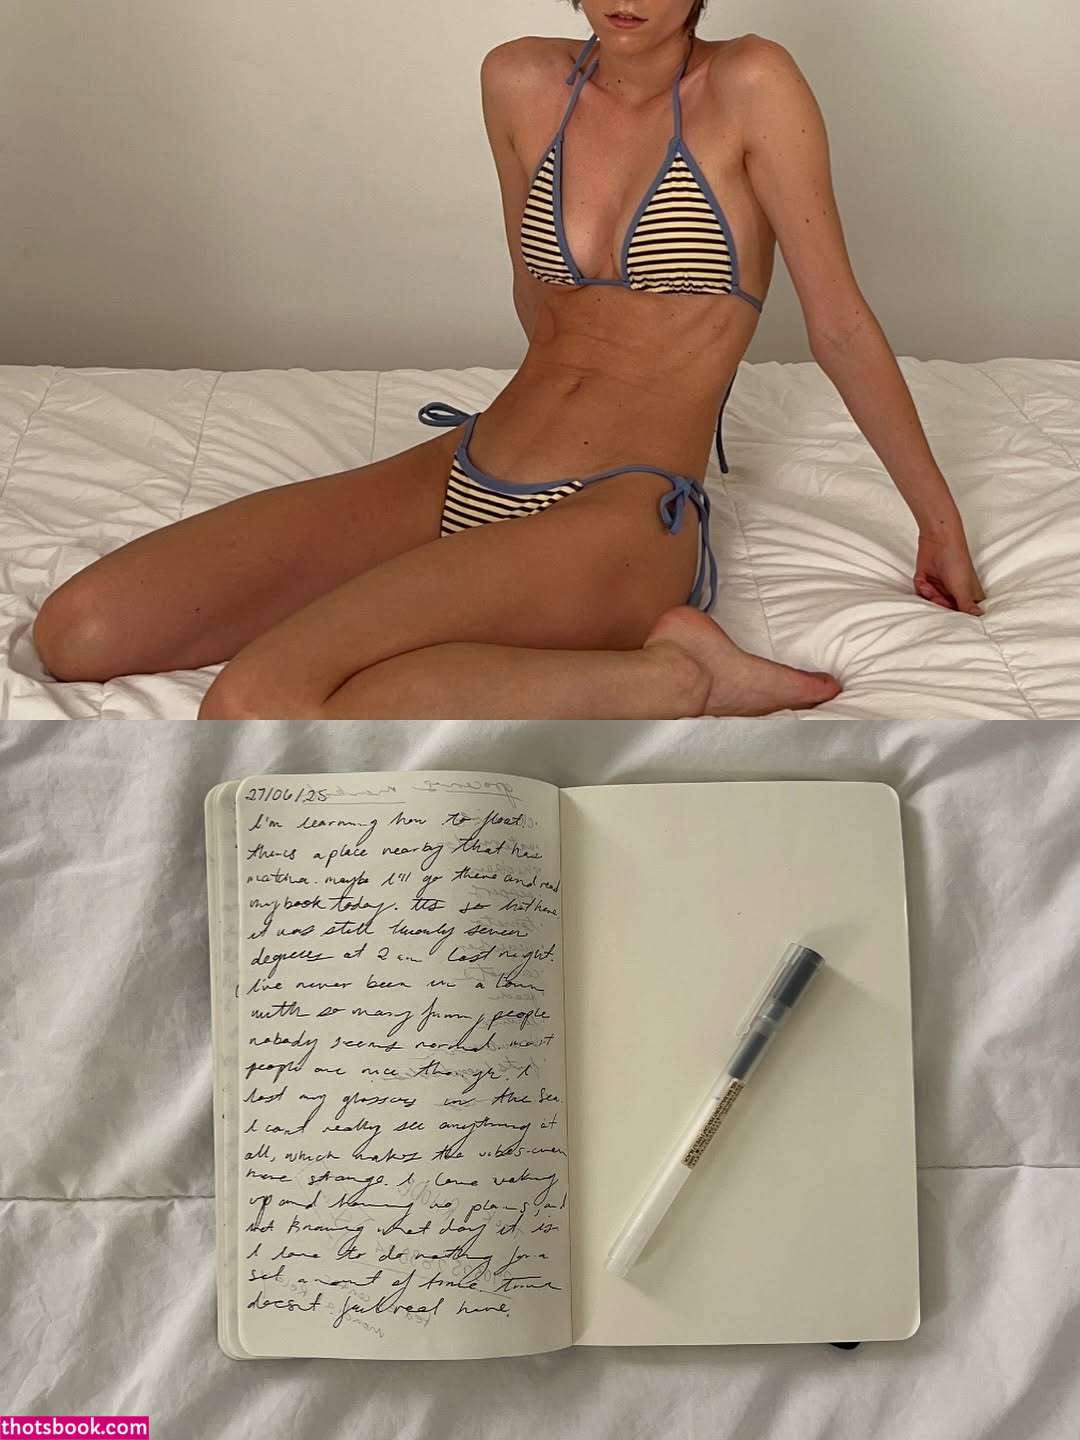 27/06/25
I'm learning how to float.
theres a place nearby that has
matcha. maybe I'll go there and read
my book today. its so hot here
it was still twenty seven
degrees at 2 am last night.
I've never been in a town
with so many funny people
nobody seems normal. most
people are nice though. I
lost my glasses in the sea.
I cant really see anything at
all, which makes the vibes even
more strange. I love waking
up and having no plans, and
not knowing what day it is
I love to do nothing for a
set amount of time. time
doesnt feel real here.
thotsbook.com